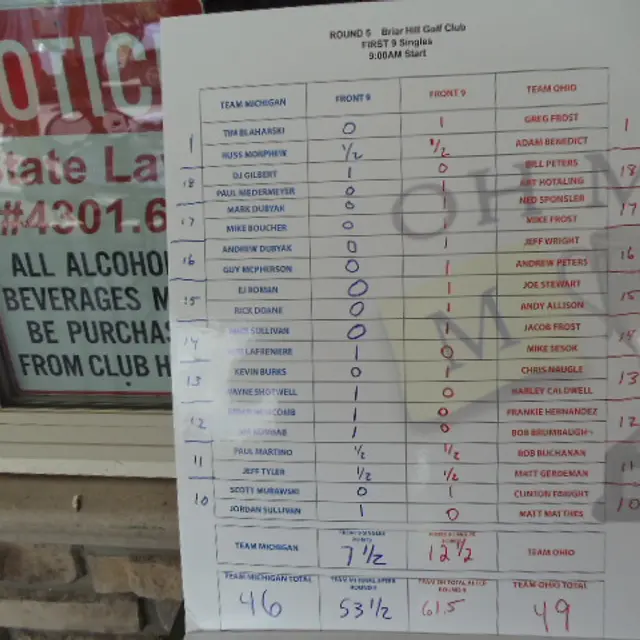 OTIC
State La
#4301.6
ALL ALCOHO
BEVERAGES M
BE PURCHA
FROM CLUB H
ROUND 5 Briar Hill Golf Club
FIRST 9 Singles
9:00AM Start
TEAM MICHIGAN FRONT 9 FRONT 9 TEAM OHIO
1 TIM BLAHARSKI 0 1 GREG FROST 1
RUSS MORPHEW 1/2 1/2 ADAM BENEDICT
18 DJ GILBERT 1 0 BILL PETERS 18
PAUL NIEDERMEYER 0 1 ART HOTALING
17 MARK DUBYAK 0 1 NED SPONSLER 17
MIKE BOUCHER 0 1 MIKE FROST
16 ANDREW DUBYAK 0 1 JEFF WRIGHT 16
GUY MCPHERSON 0 1 ANDREW PETERS
15 EJ ROMAN 0 1 JOE STEWART 15
RICK DOANE 0 1 ANDY ALLISON
14 SULLIVAN 0 1 JACOB FROST 14
LAFRENIERE 1 0 MIKE SESOK
13 KEVIN BURKS 0 1 CHRIS NAUGLE 13
WAYNE SHOTWELL 1 0 HARLEY CALDWELL
12 1 0 FRANKIE HERNANDEZ 12
1 0 BOB BRUMBAUGH
11 PAUL MARTINO 1/2 1/2 ROB BUCHANAN 11
JEFF TYLER 1/2 1/2 MATT GERDEMAN
10 SCOTT MURAWSKI 0 1 CLINTON 10
JORDAN SULLIVAN 1 0 MATT MATTHES
TEAM MICHIGAN 7 1/2 12 1/2 TEAM OHIO
TEAM MICHIGAN TOTAL TEAM OHIO TOTAL
46 53 1/2 61.5 49
OH M
M